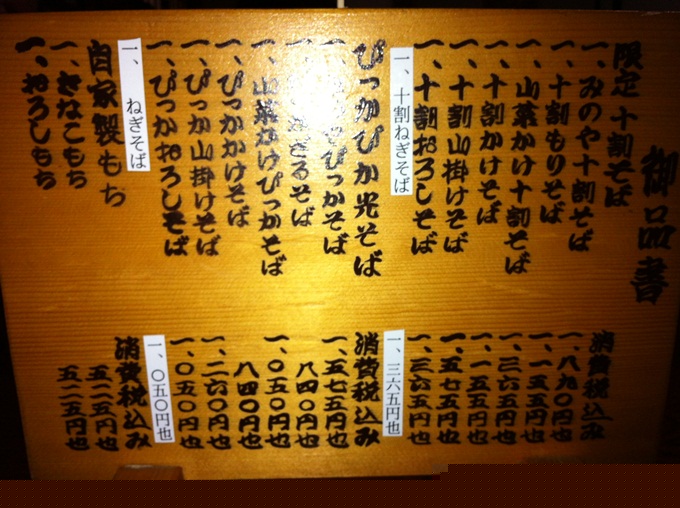 御品書
限定 十割そば
一、みのや十割そば
一、十割もりそば
一、山菜かけ十割そば
一、十割かけそば
一、十割山掛けそば
一、十割おろしそば
一、十割ねぎそば
ぴっかぴか光そば
一、ぴっかそば
一、ざるそば
一、山菜かけぴっかそば
一、ぴっかかけそば
一、ぴっか山掛けそば
一、ぴっかおろしそば
一、ねぎそば
自家製もち
一、きなこもち
一、おろしもち
消費税込み
一、八九〇円也
一、一五五円也
一、三六五円也
一、一五五円也
一、五七五円也
一、三六五円也
一、三六五円也
消費税込み
一、五七五円也
八四〇円也
一、〇五〇円也
八四〇円也
一、二六〇円也
一、〇五〇円也
一、〇五〇円也
消費税込み
五二五円也
五二五円也